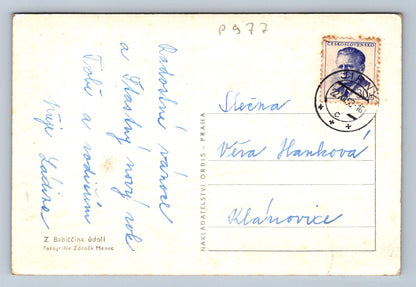 p977
Radostné vánoce
a šťastný nový rok
Tobě a rodičům
přeje Láďina
Z Babiččina údolí
Fotografie Zdeněk Menec
NAKLADATELSTVÍ ORBIS - PRAHA
ČESKOSLOVENSKO
Slečna
Věra Hanková
Klánovice